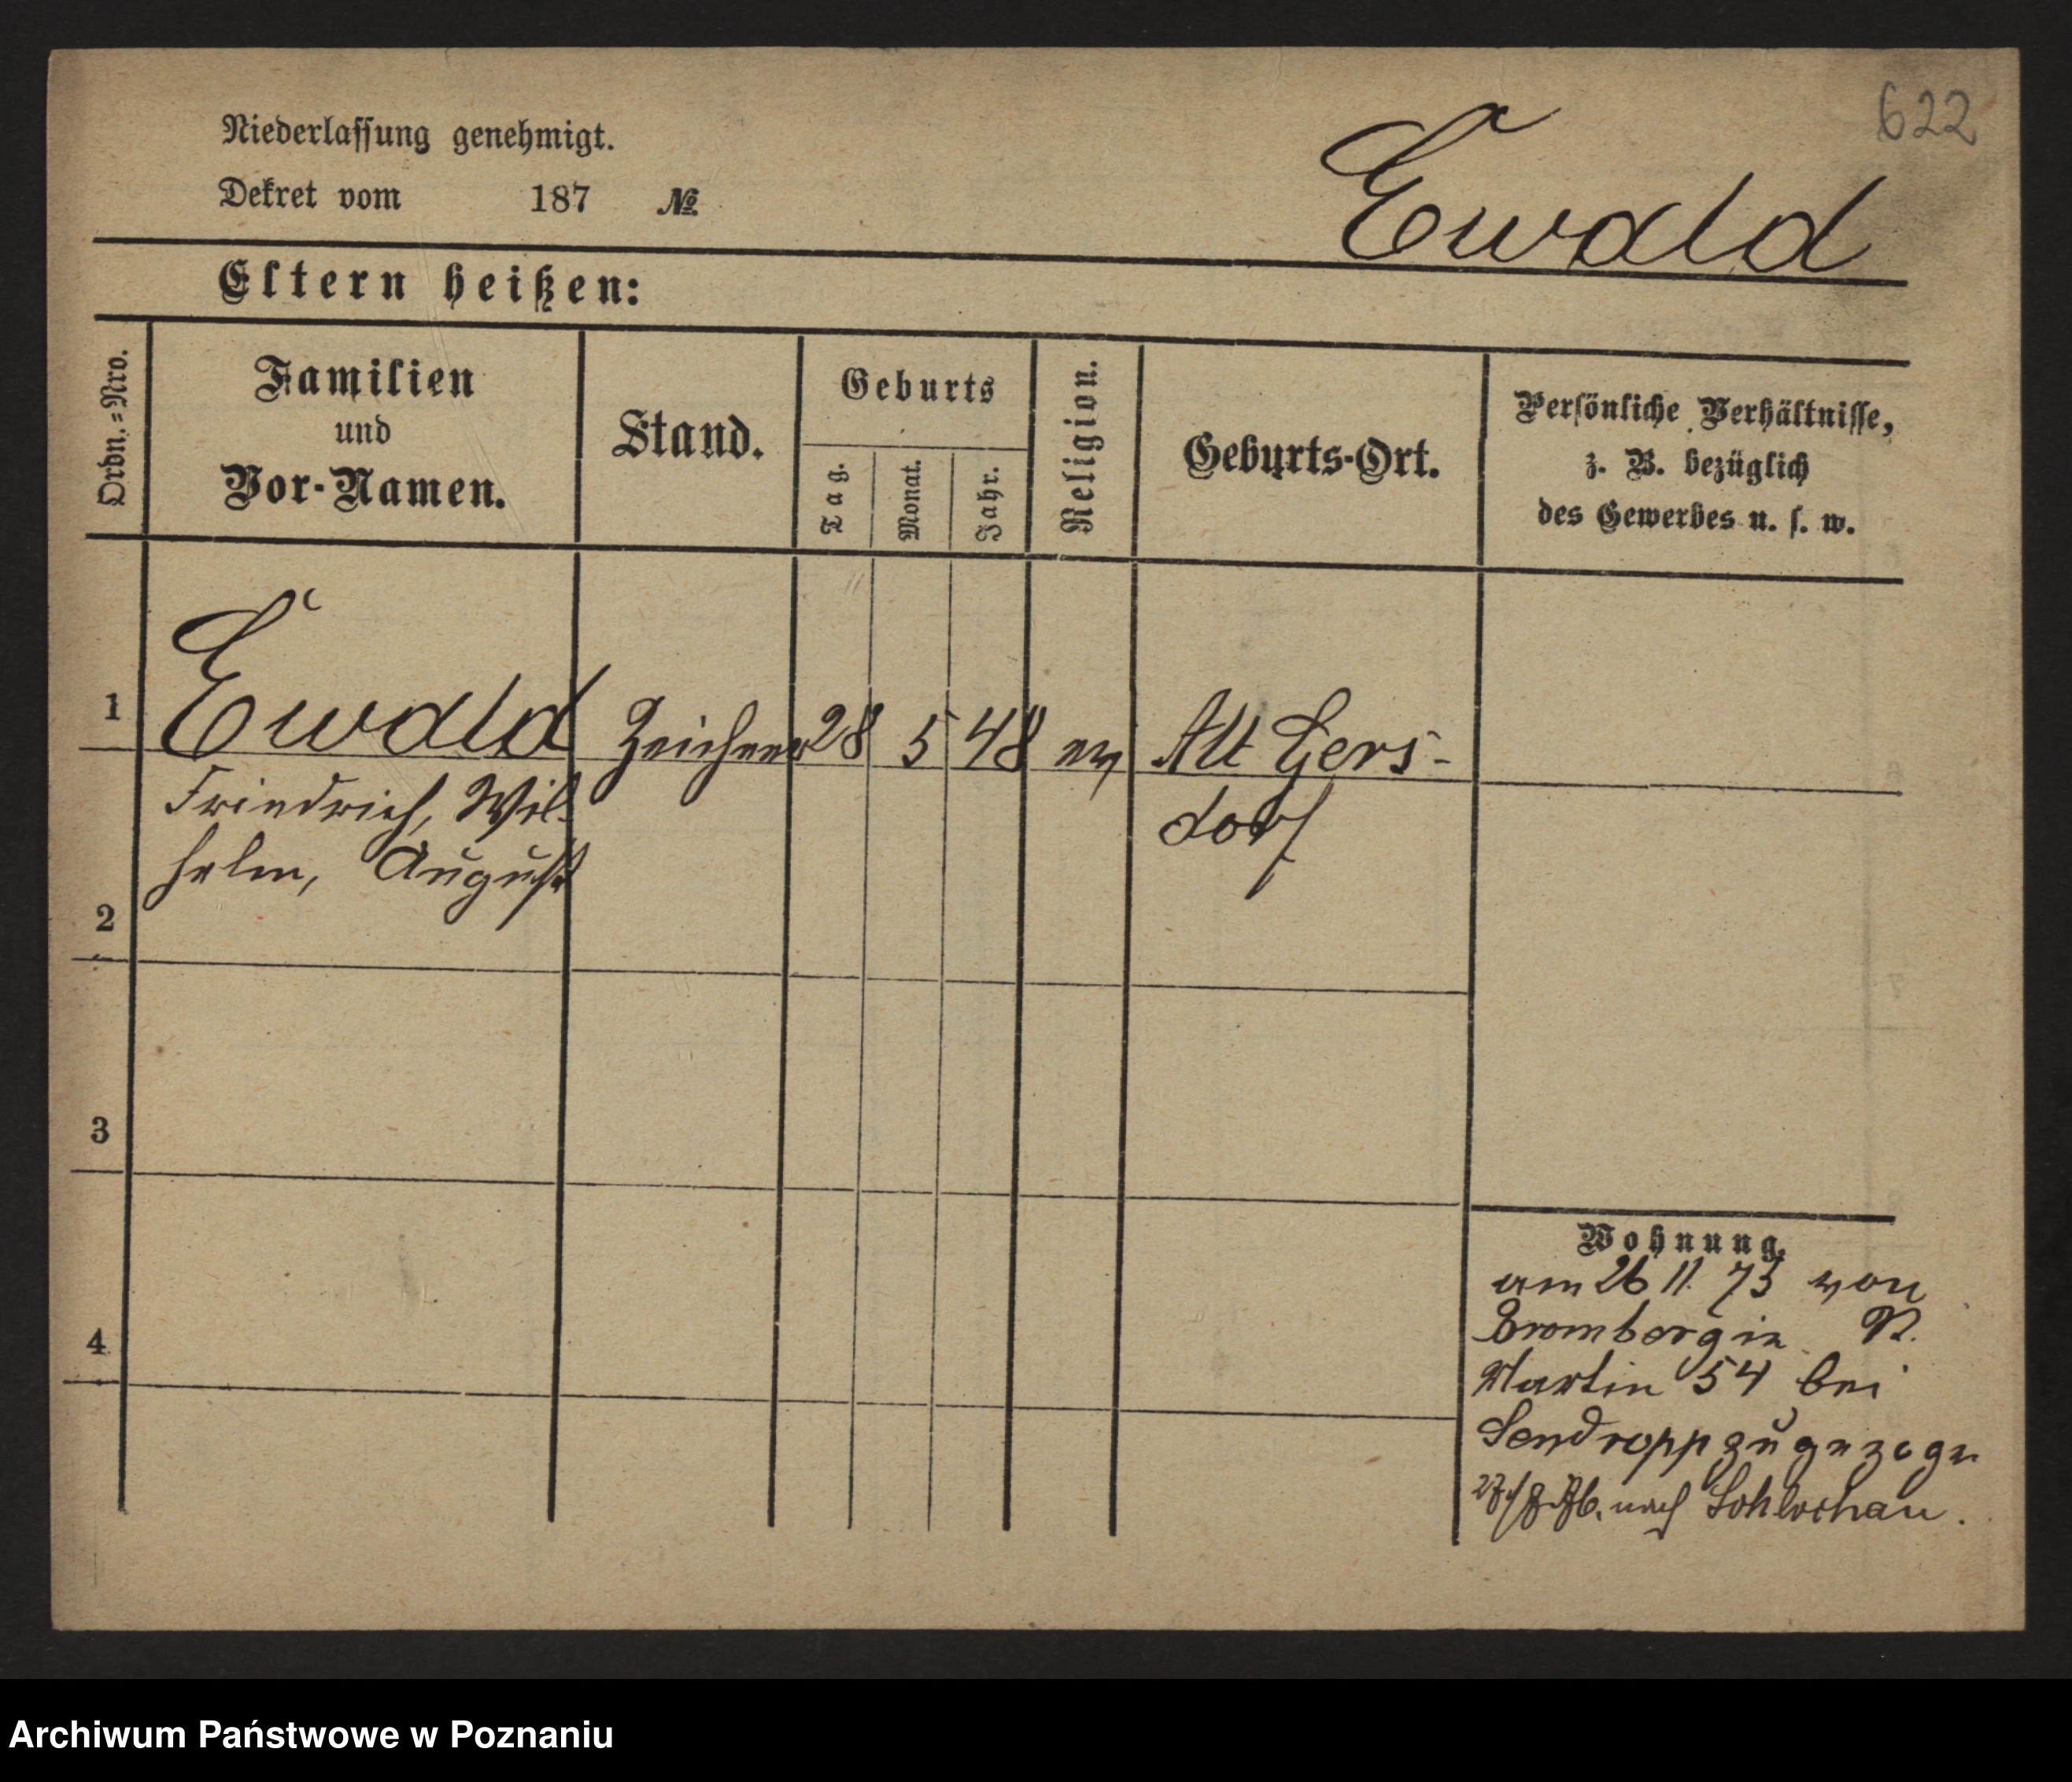 622
Niederlassung genehmigt.
Dekret vom 187 №
Ewald
Eltern heißen:
Ordn.=Nro.
Familien
und
Vor-Namen.
Stand.
Geburts
Tag.
Monat.
Jahr.
Religion.
Geburts-Ort.
Persönliche Verhältnisse,
z. B. bezüglich
des Gewerbes u. s. w.
1 Ewald Zeichner 28 5 48 ev Alt Gers-
Friedrich, Wil- dorf
helm, August
2
3
4
Wohnung.
am 26 11. 73 von
Bromberg in
Martin 54 bei
Sendropp zugezogn
nach Schlochau.
Archiwum Państwowe w Poznaniu